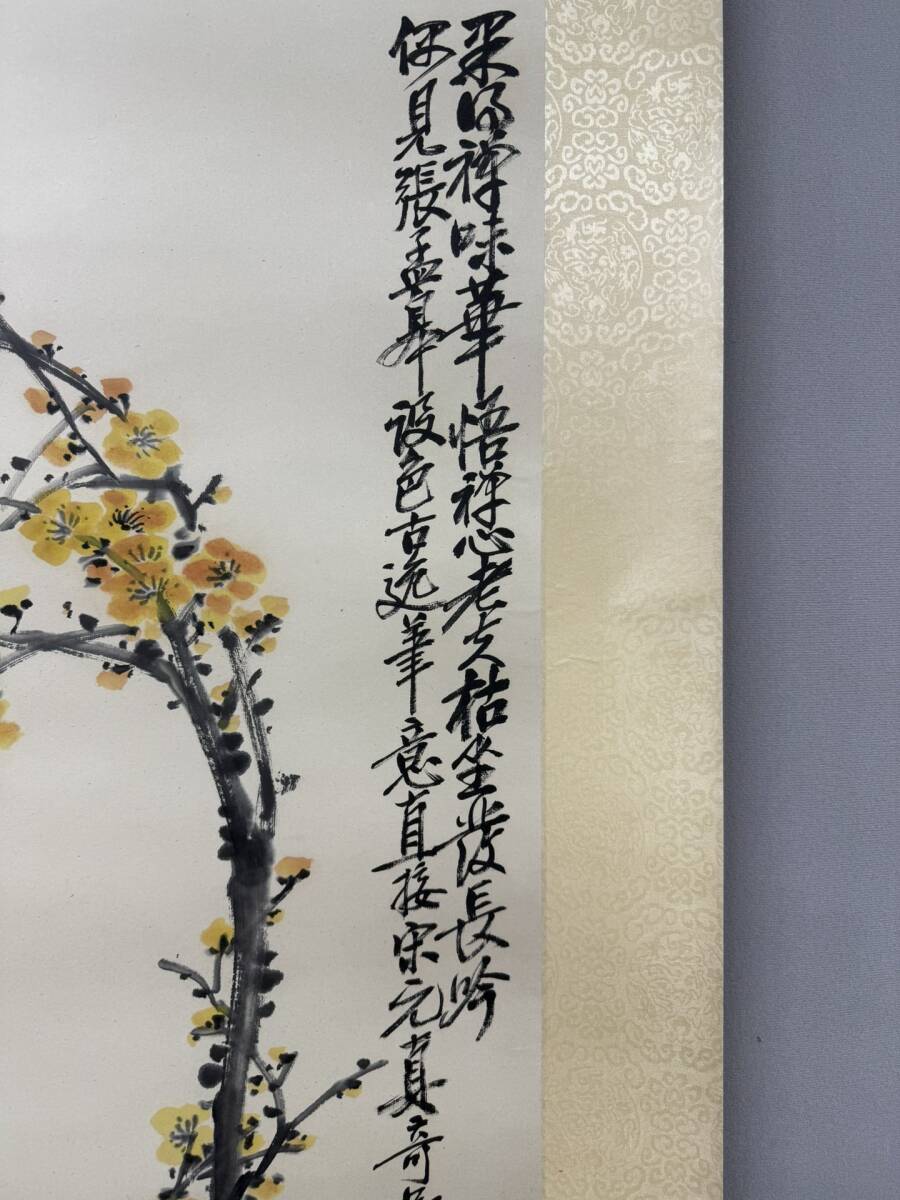 采得禪味華悟禪心老夫枯坐發長吟
偶見張孟皋設色古逸筆意直接宋元真奇